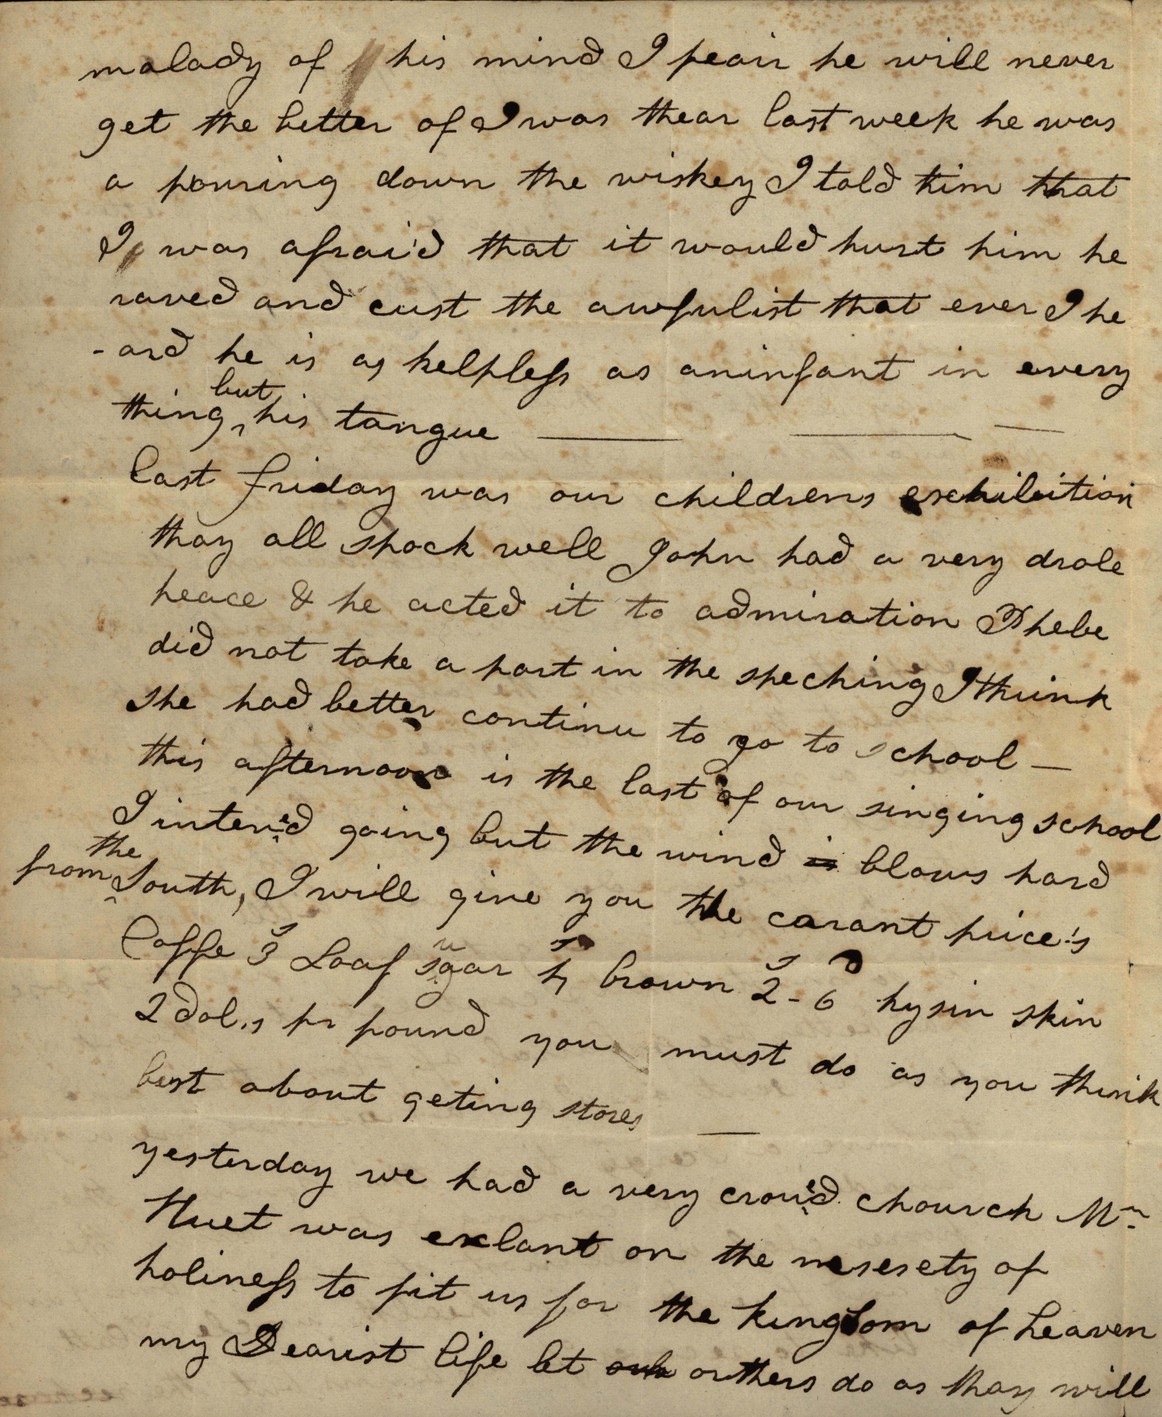 malady of his mind I feair he will never
get the better of I was thear last week he was
a pouring down the wiskey I told him that
I was afrai'd that it would hurt him he
raved and cust the awfulist that ever I he
-ard he is as helpless as aninfant in every
thing but his tangue
last friday was our childrens exhibition
thay all spock well John had a very drole
peace & he acted it to admiration Phebe
did not take a part in the speching I think
she had better continu to go to school —
this afternoon is the last of our singing school
I inten'd going but the wind is blows hard
from the South, I will give you the carant price's
Coffe 3s Loaf sugar brown 2s-6d hysin skin
2 dol.s pr pound you must do as you think
best about geting stores —
yesterday we had a very crou'd chourch Mr
Huet was exlant on the nesesety of
holiness to fit us for the kingdom of heaven
my Dearist life let orthers do as thay will